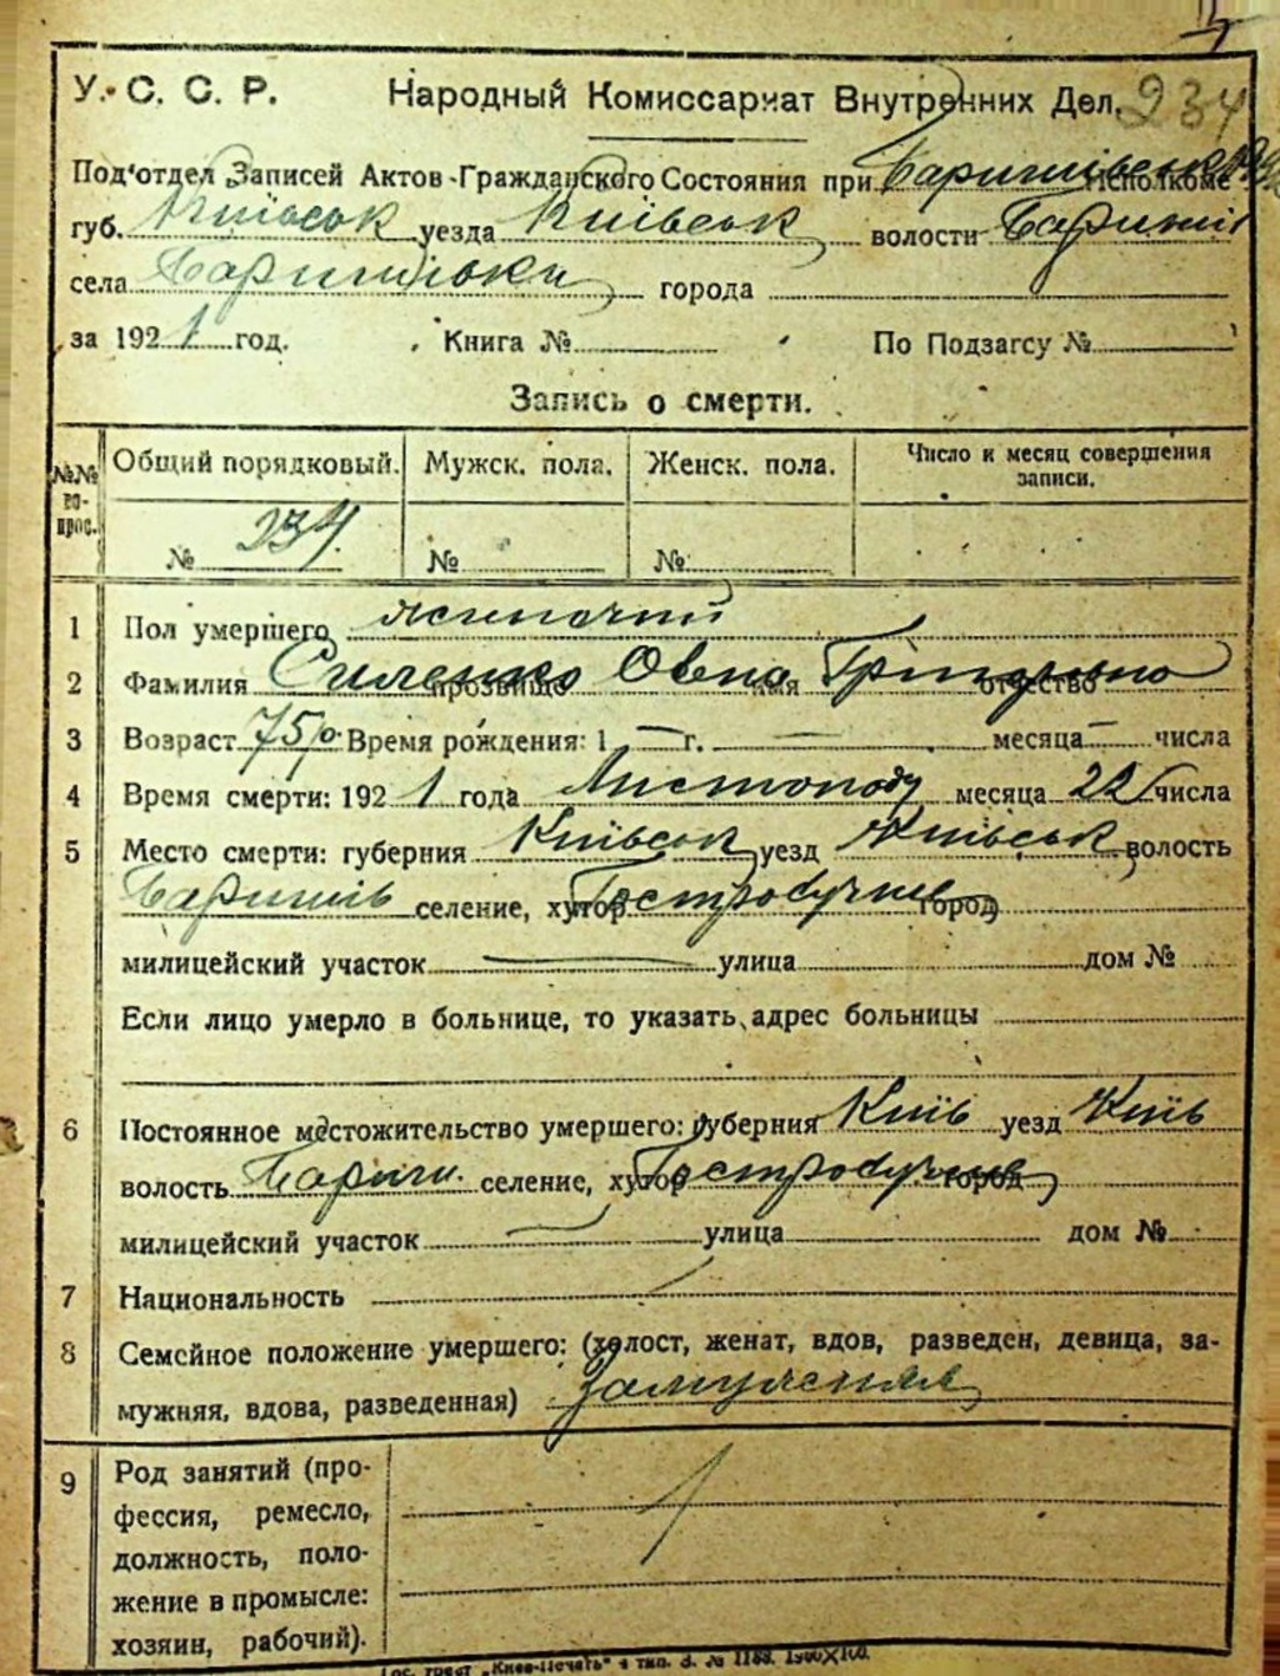 У. С. С. Р. Народный Комиссариат Внутренних Дел. 234
Под'отдел Записей Актов Гражданского Состояния при Исполкоме
губ. Київськ уезда Київськ волости Баришів
села Баришівки города
за 1921 год. Книга № По Подзагсу №
Запись о смерти.
№№ вопрос. Общий порядковый. Мужск. пола. Женск. пола. Число и месяц совершения записи.
№ 234 № №
1 Пол умершего жіночий
2 Фамилия прозвище имя отчество
3 Возраст 75 р. Время рождения: 1 — г. — месяца — числа
4 Время смерти: 1921 года Листопаду месяца 22 числа
5 Место смерти: губерния Київськ уезд Київськ волость
Баришів селение, хутор город
милицейский участок — улица дом №
Если лицо умерло в больнице, то указать адрес больницы
6 Постоянное местожительство умершего: губерния Київ уезд Київ
волость Бариш. селение, хутор город
милицейский участок — улица дом №
7 Национальность
8 Семейное положение умершего: (холост, женат, вдов, разведен, девица, за-
мужняя, вдова, разведенная)
9 Род занятий (про-
фессия, ремесло,
должность, поло-
жение в промысле:
хозяин, рабочий).
„Киев-Печать"